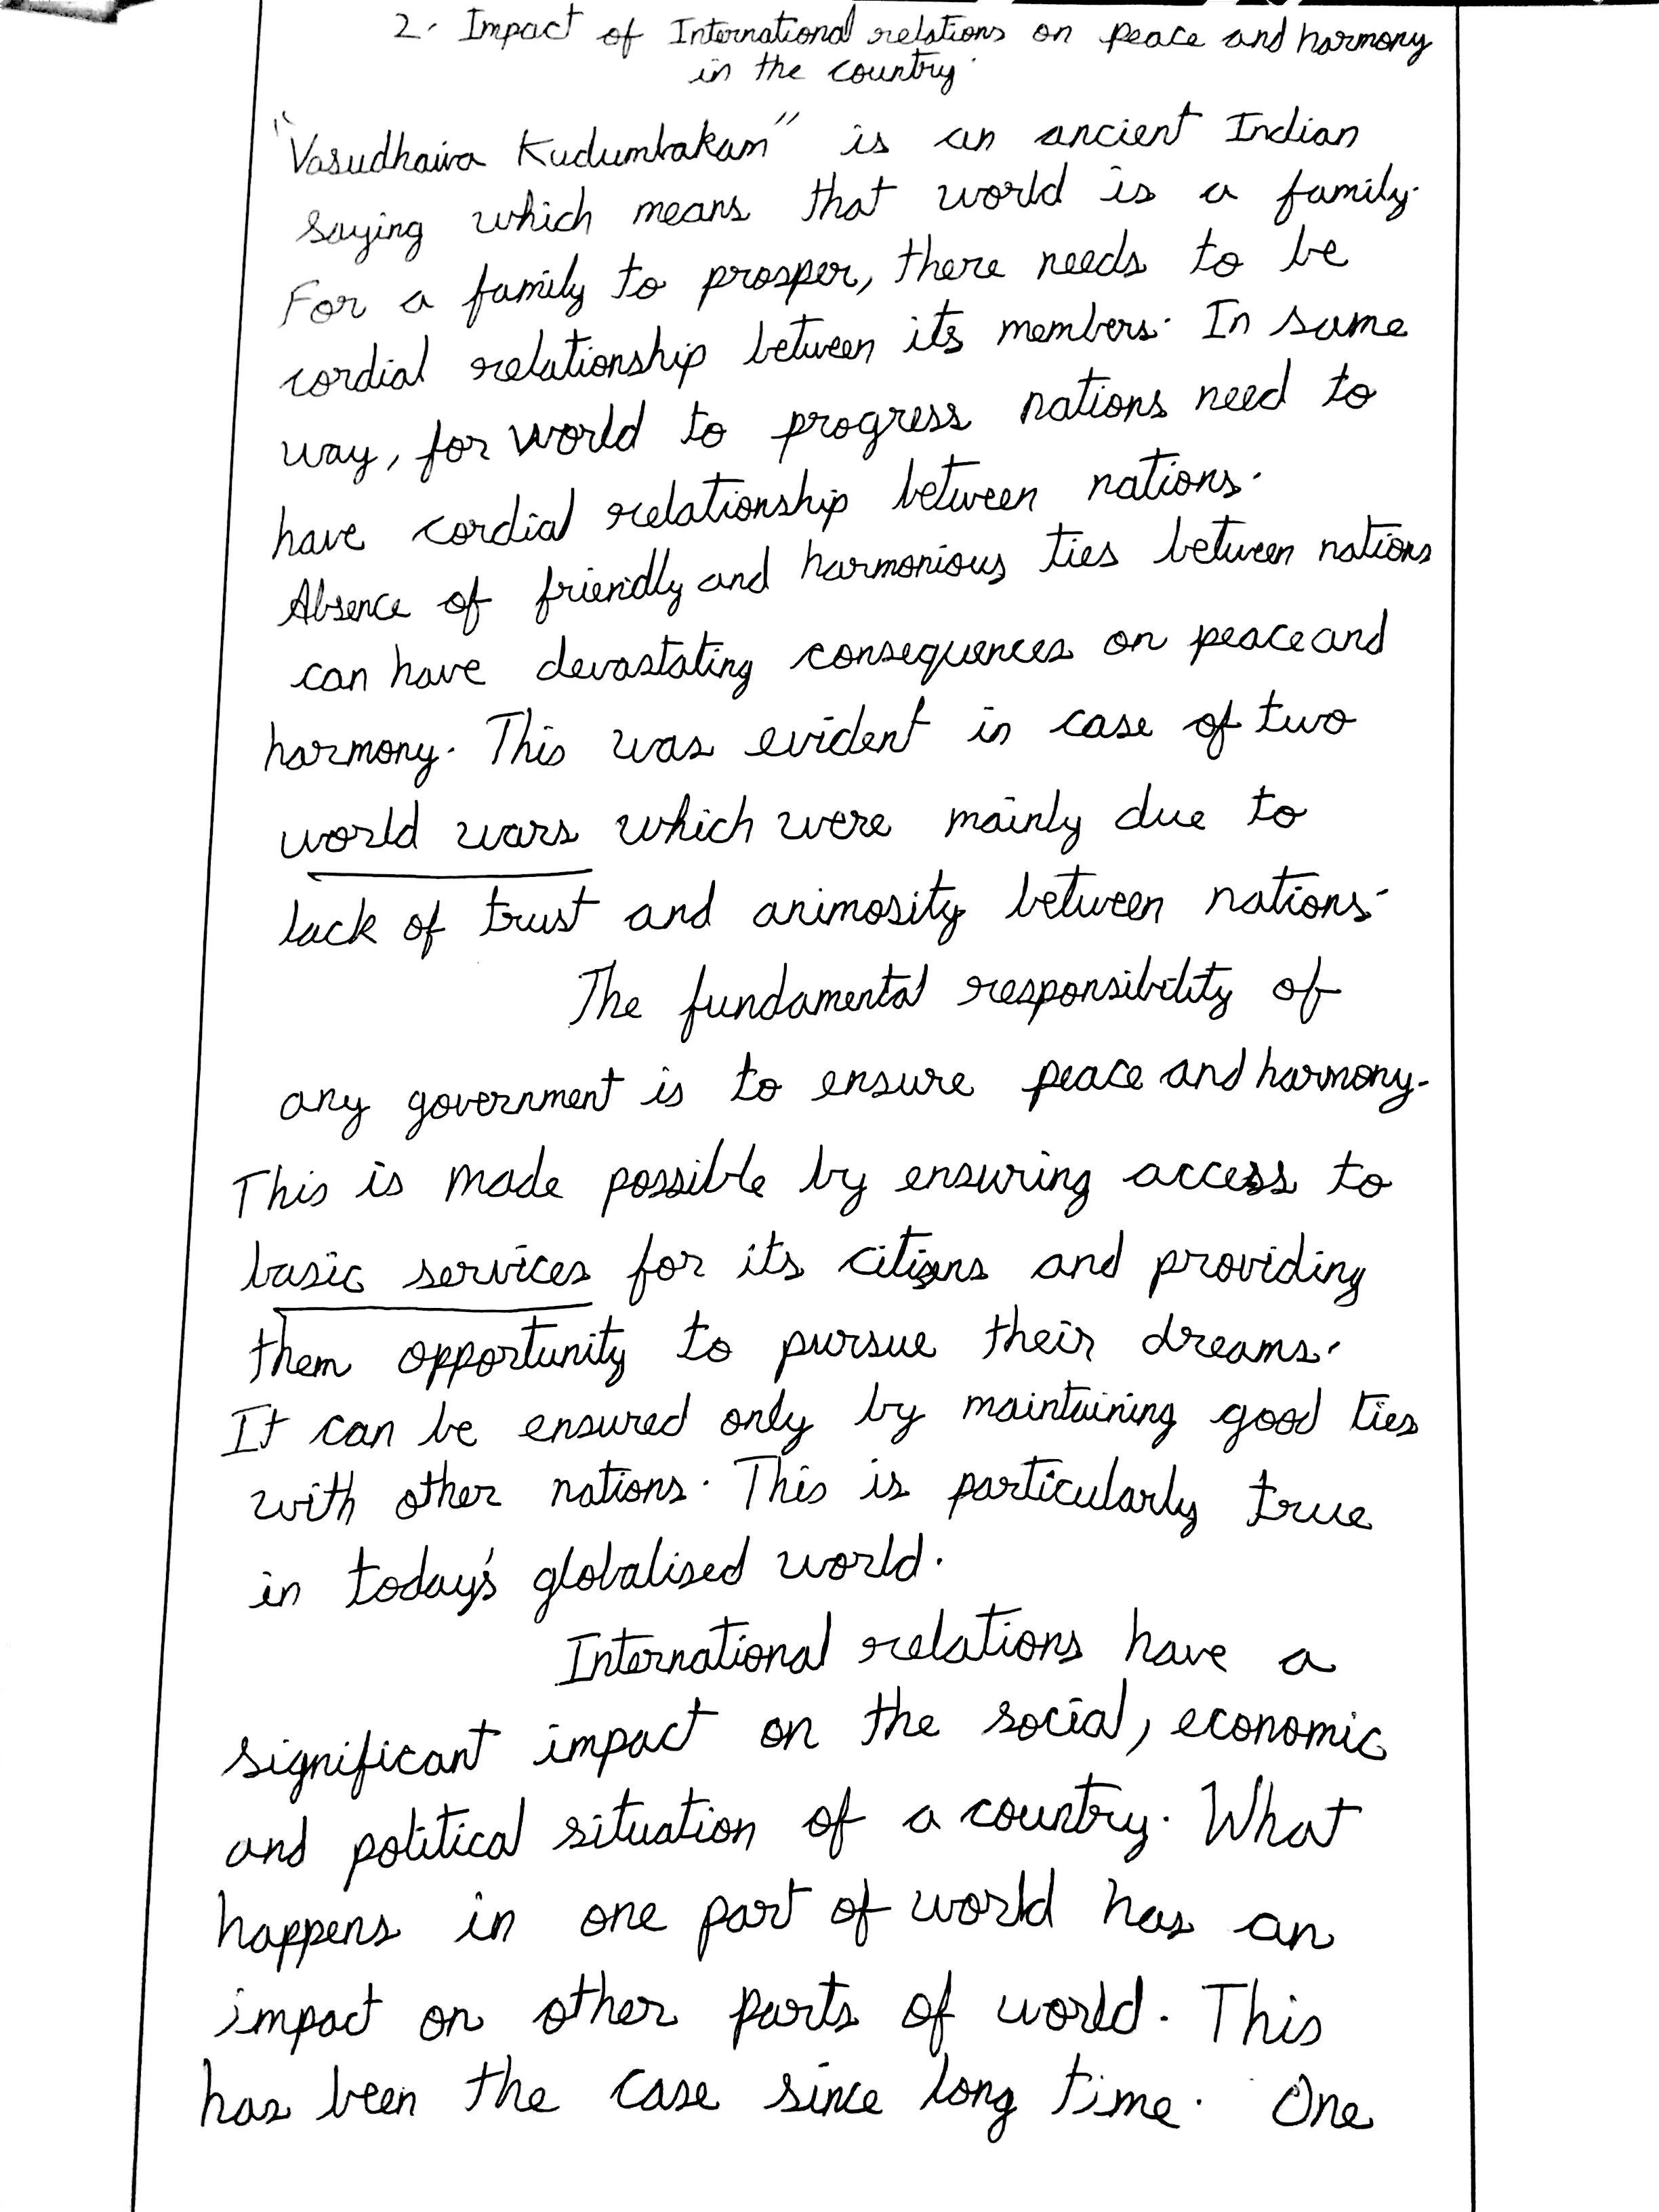 2. Impact of International relations on peace and harmony
in the country.
"Vasudhaiva Kudumbakam" is an ancient Indian
saying which means that world is a family.
For a family to prosper, there needs to be
cordial relationship between its members. In same
way, for world to progress nations need to
have cordial relationship between nations.
Absence of friendly and harmonious ties between nations
can have devastating consequences on peace and
harmony. This was evident in case of two
world wars which were mainly due to
lack of trust and animosity between nations.
The fundamental responsibility of
any government is to ensure peace and harmony.
This is made possible by ensuring access to
basic services for its citizens and providing
them opportunity to pursue their dreams.
It can be ensured only by maintaining good ties
with other nations. This is particularly true
in today's globalised world.
International relations have a
significant impact on the social, economic
and political situation of a country. What
happens in one part of world has an
impact on other parts of world. This
has been the case since long time. One